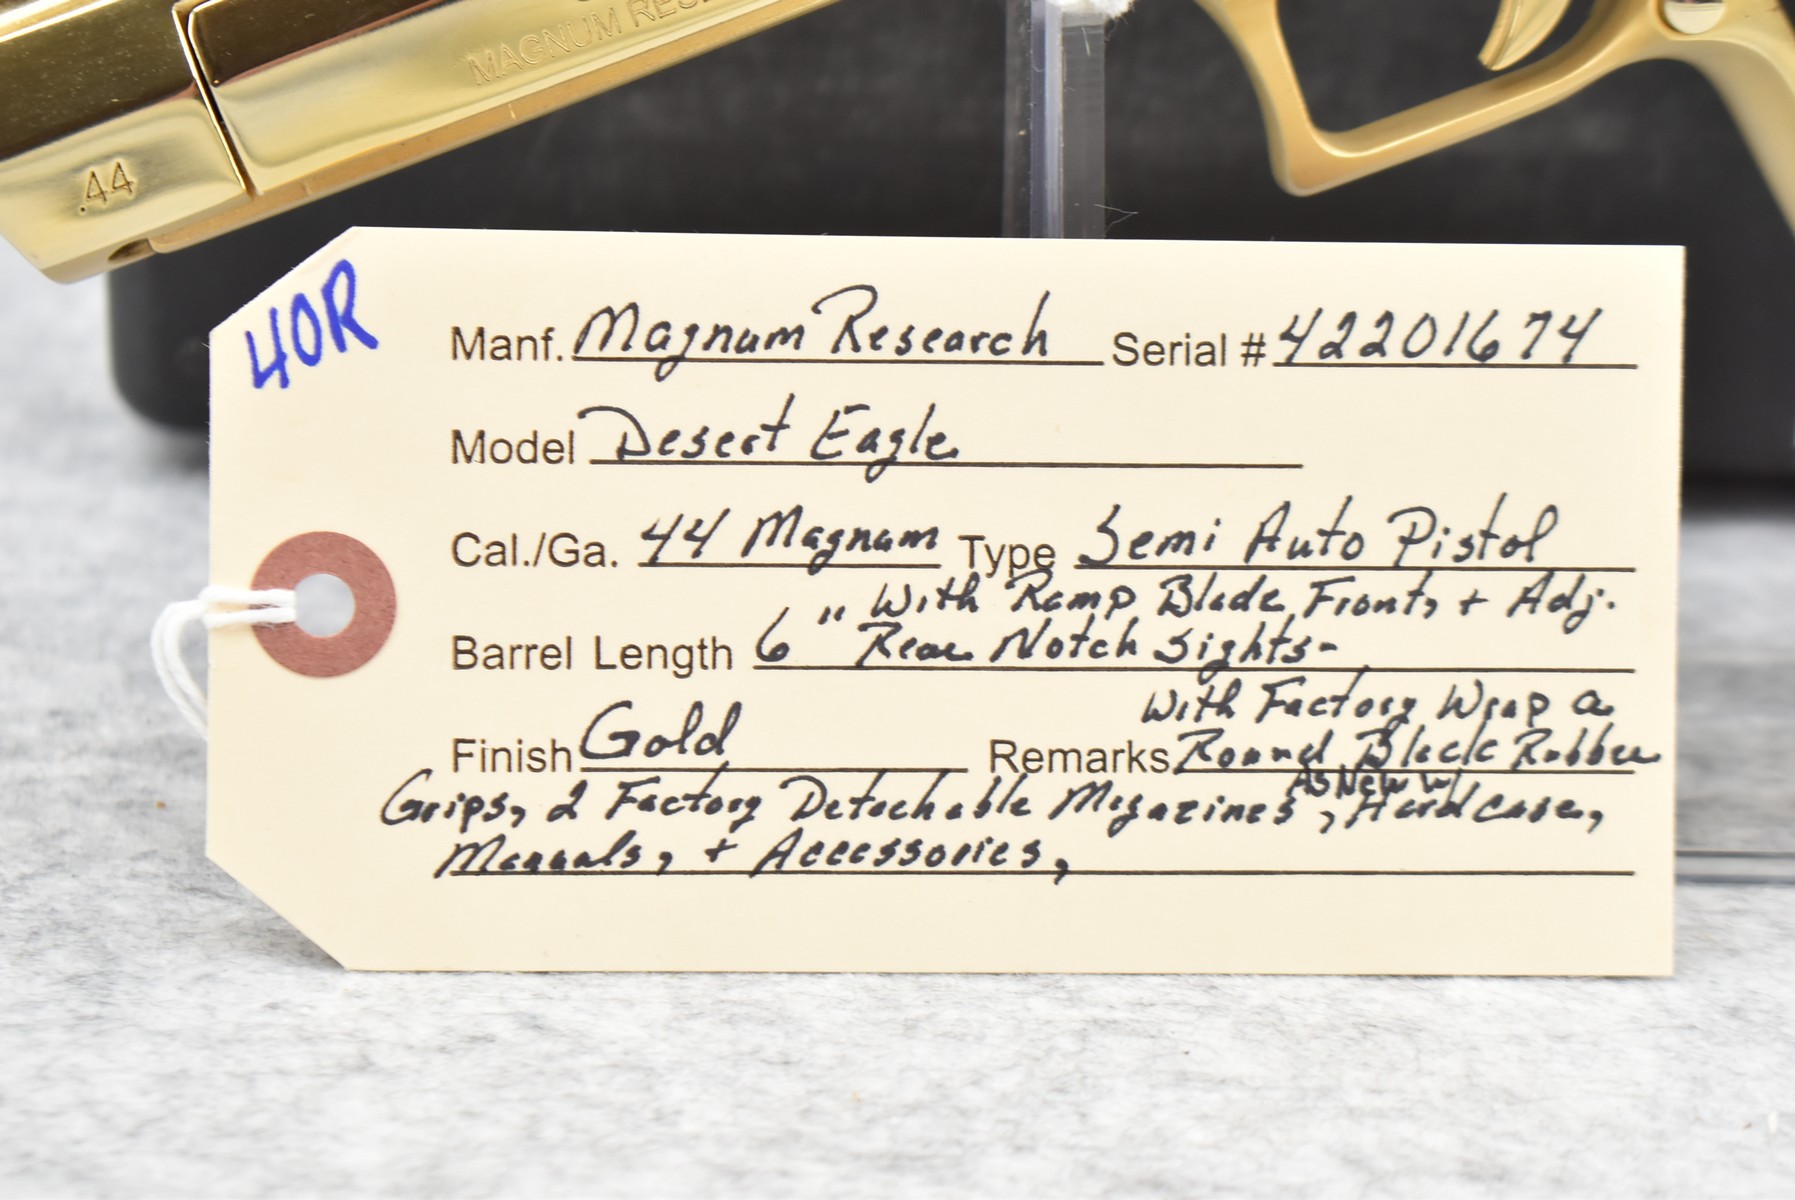 MAGNUM RES
.44
40R
Manf. Magnum Research Serial # 42201674
Model Desert Eagle
Cal./Ga. 44 Magnum Type Semi Auto Pistol
With Ramp Blade Front, + Adj.
Barrel Length 6" Rear Notch Sights-
With Factory Wrap a
Finish Gold Remarks Round Black Rubber
As New w/
Grips, 2 Factory Detachable Magazines, Hardcase,
Manuals, + Accessories,